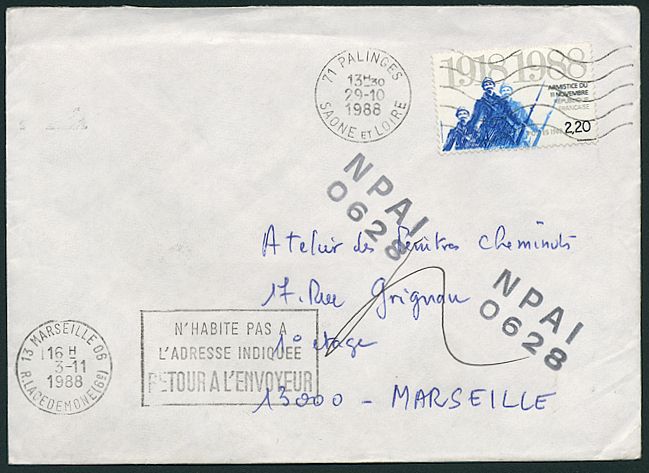 71 PALINGES
13H30
29-10
1988
SAONE ET LOIRE
1918 1988
ARMISTICE DU
11 NOVEMBRE
RÉPUBLIQUE
FRANÇAISE
2,20
NPAI
0628
Atelier des Peintres Cheminots
17. Rue Grignan
1° etage
13000 - MARSEILLE
NPAI
0628
13 MARSEILLE 06
16 H
3-11
1988
R. LACEDEMONE (6e)
N'HABITE PAS A
L'ADRESSE INDIQUEE
RETOUR A L'ENVOYEUR